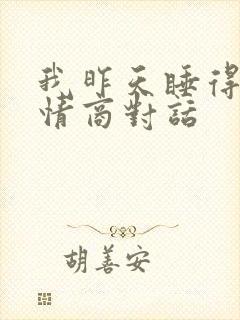 我昨天睡得
情商對話
胡善安